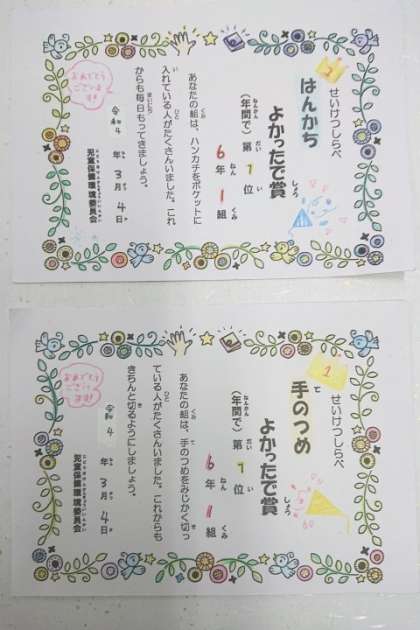 せいけつしらべ
はんかち
よかったで賞
(年間で)第1位
6年1組
あなたの組は、ハンカチをポケットに
入れている人がたくさんいました。これ
からも毎日もってきましょう。
令和4年3月4日
児童保健環境委員会
おめでとう
ございま
す!!
せいけつしらべ
手のつめ
よかったで賞
(年間で)第1位
6年1組
あなたの組は、手のつめをみじかく切っ
ている人がたくさんいました。これからも
きちんと切るようにしましょう。
令和4年3月4日
児童保健環境委員会
おめでとう
ござい
ます!